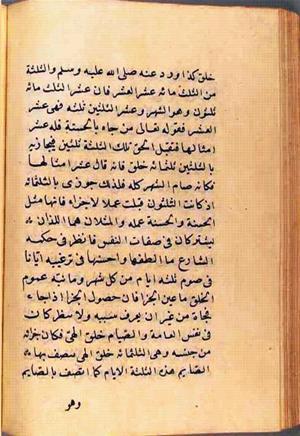 خلق كذا ورد عنه صلى الله عليه وسلم والثلثة
من الثلث مائة عشر العشر فان عشر الثلث مائة
ثلثون وهو الشهر وعشر الثلثين ثلثة فهى عشر
العشر فقوله تعالى من جاء بالحسنة فله عشر
امثالها فتقبل الحق تلك الثلثة ثلثين فيجازيه
بالثلثين ثلثمائة خلق فانه قال عشر امثالها
فكانه صام الشهر كله فلذلك جوزى بالثلثمائة
اذ كانت الثلثون قبلت عملا لا جزاء فانها مثل
الحسنة والحسنة عمله والمثلان هما اللذان
يشتركان فى صفات النفس فانظر فى حكمة
الشارع ما الطفها واحسنها فى ترغيبه ايانا
فى صوم ثلثة ايام من كل شهر وما نبه عموم
الخلق ما عين الجزا فان حصول الجزا اذا جاء
فجاءة من غير ان يعرف سببه ولا سطر كان
فى نفس العامة والصيام خلق الهى فكان جزاؤه
من جنسه وهى الثلثمائة خلق الهى متصف بها
الصايم هذه الثلثة الايام كما اتصف بالصايم
وهو